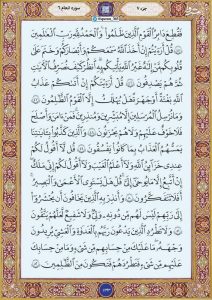 جزء ٧
سورة انعام ٦
فَقُطِعَ دَابِرُ ٱلْقَوْمِ ٱلَّذِينَ ظَلَمُوا۟ وَٱلْحَمْدُ لِلَّهِ رَبِّ ٱلْعَٰلَمِينَ
۝٤٥ قُلْ أَرَءَيْتُمْ إِنْ أَخَذَ ٱللَّهُ سَمْعَكُمْ وَأَبْصَٰرَكُمْ وَخَتَمَ عَلَىٰ
قُلُوبِكُم مَّنْ إِلَٰهٌ غَيْرُ ٱللَّهِ يَأْتِيكُم بِهِ ٱنظُرْ كَيْفَ نُصَرِّفُ ٱلْءَايَٰتِ
ثُمَّ هُمْ يَصْدِفُونَ ۝٤٦ قُلْ أَرَءَيْتَكُمْ إِنْ أَتَىٰكُمْ عَذَابُ
ٱللَّهِ بَغْتَةً أَوْ جَهْرَةً هَلْ يُهْلَكُ إِلَّا ٱلْقَوْمُ ٱلظَّٰلِمُونَ
۝٤٧ وَمَا نُرْسِلُ ٱلْمُرْسَلِينَ إِلَّا مُبَشِّرِينَ وَمُنذِرِينَ فَمَنْ ءَامَنَ وَأَصْلَحَ
فَلَا خَوْفٌ عَلَيْهِمْ وَلَا هُمْ يَحْزَنُونَ ۝٤٨ وَٱلَّذِينَ كَذَّبُوا۟ بِـَٔايَٰتِنَا
يَمَسُّهُمُ ٱلْعَذَابُ بِمَا كَانُوا۟ يَفْسُقُونَ ۝٤٩ قُل لَّآ أَقُولُ لَكُمْ
عِندِى خَزَآئِنُ ٱللَّهِ وَلَآ أَعْلَمُ ٱلْغَيْبَ وَلَآ أَقُولُ لَكُمْ إِنِّى مَلَكٌ
إِنْ أَتَّبِعُ إِلَّا مَا يُوحَىٰٓ إِلَىَّ قُلْ هَلْ يَسْتَوِى ٱلْأَعْمَىٰ وَٱلْبَصِيرُ
أَفَلَا تَتَفَكَّرُونَ ۝٥٠ وَأَنذِرْ بِهِ ٱلَّذِينَ يَخَافُونَ أَن يُحْشَرُوٓا۟
إِلَىٰ رَبِّهِمْ لَيْسَ لَهُم مِّن دُونِهِۦ وَلِىٌّ وَلَا شَفِيعٌ لَّعَلَّهُمْ يَتَّقُونَ
۝٥١ وَلَا تَطْرُدِ ٱلَّذِينَ يَدْعُونَ رَبَّهُم بِٱلْغَدَوٰةِ وَٱلْعَشِىِّ يُرِيدُونَ
وَجْهَهُۥ مَا عَلَيْكَ مِنْ حِسَابِهِم مِّن شَىْءٍ وَمَا مِنْ حِسَابِكَ
عَلَيْهِم مِّن شَىْءٍ فَتَطْرُدَهُمْ فَتَكُونَ مِنَ ٱلظَّٰلِمِينَ ۝٥٢